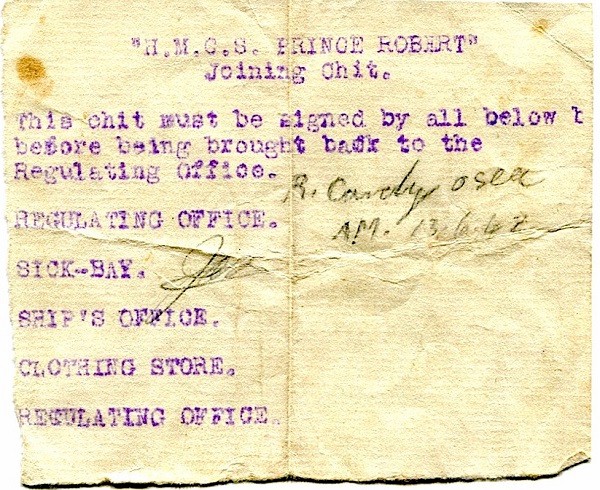 "H.M.C.S. PRINCE ROBERT"
Joining Chit.
This chit must be signed by all below b
before being brought back to the
Regulating Office.
R. Candy OSEA
A.M. 13.6.42
REGULATING OFFICE.
SICK-BAY.
SHIP'S OFFICE.
CLOTHING STORE.
REGULATING OFFICE.